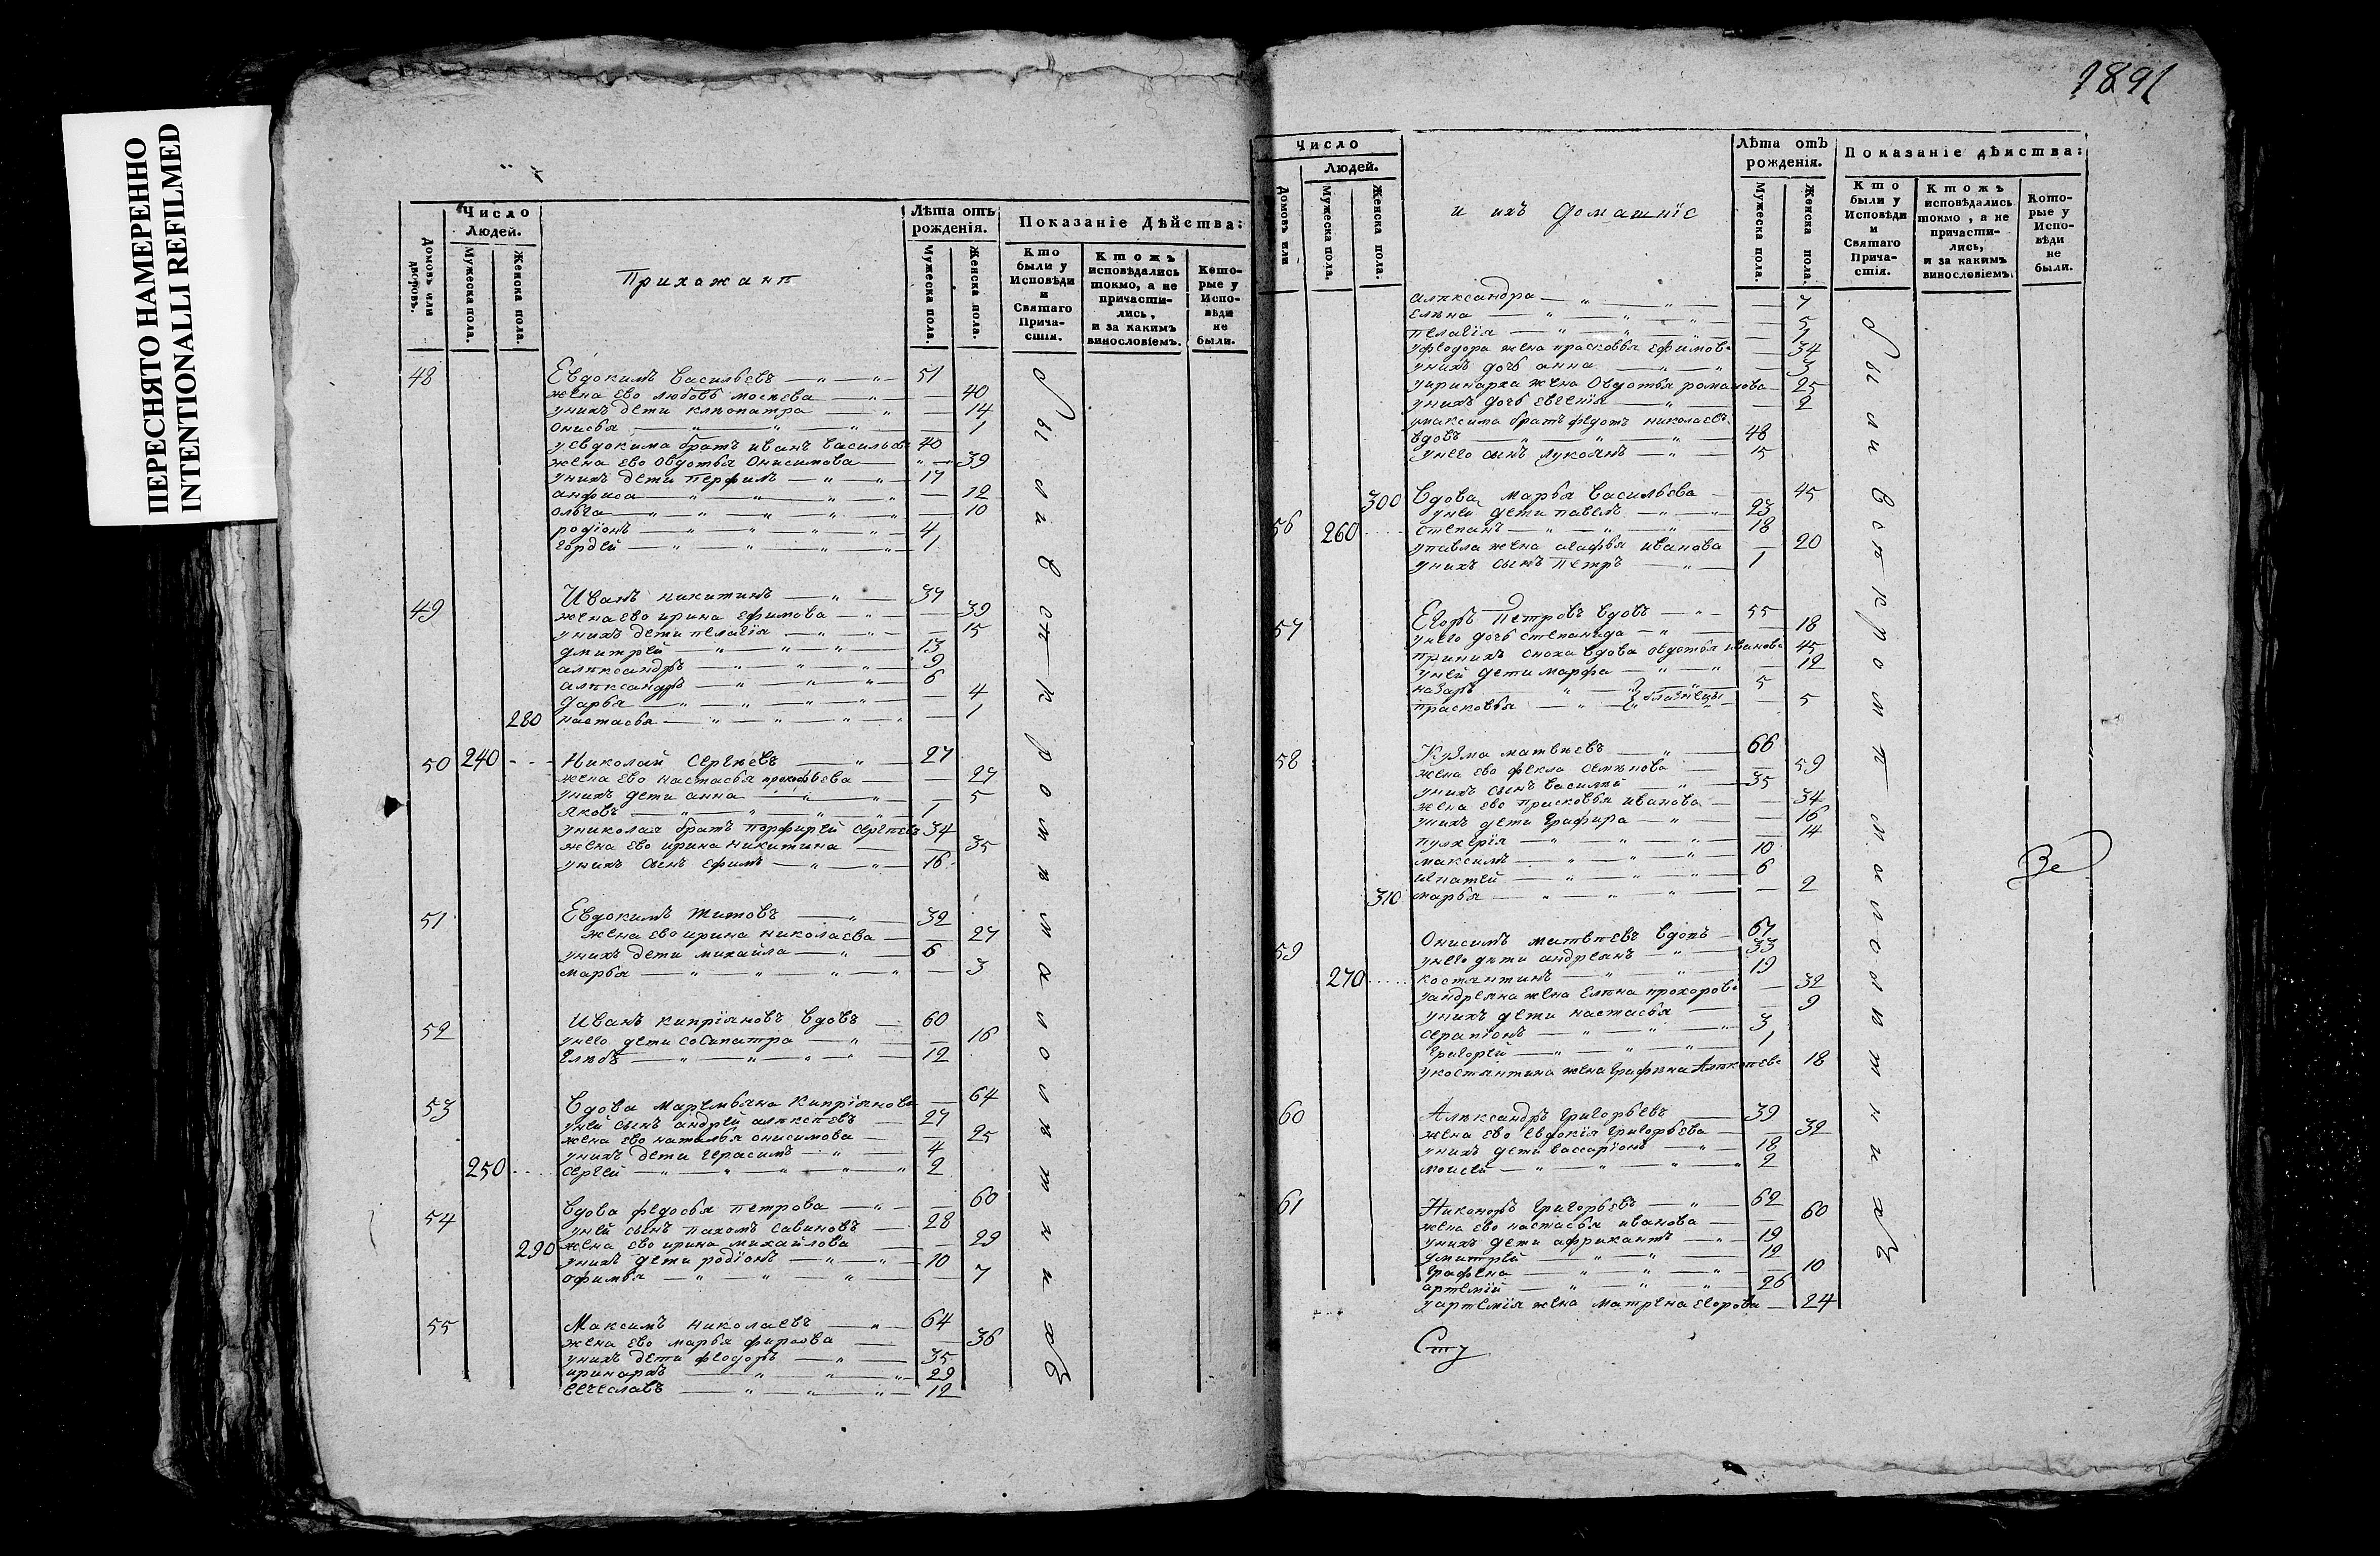 ПЕРЕСНЯТО НАМЕРЕННО
INTENTIONALLI REFILMED
Число
Людей.
Домовъ или дворовъ.
Мужеска пола.
Женска пола.
Прихожанѣ
Лѣта отъ рожденія.
Мужеска пола.
Женска пола.
Показаніе Дѣйства:
Кто были у Исповѣди и Святаго Прича-стія.
Ктожъ исповѣдались токмо, а не причасти-лись, и за какимъ винословіемъ.
Кото-рые у Испо-вѣди не были.
48 Евдокимъ Васильевъ 51
жена ево любовь 40
унихъ дети клѣопатра 14
онисья 1
уевдокима братъ иванъ васильев 40
жена ево овдотья Онисимова 39
унихъ дети перфилъ 17
анфиса 12
ольга 10
родіонъ 4
гордей 1
49 Иванъ никитинъ 37
жена ево ирина ефимова 39
унихъ дети пелагія 15
дмитрей 13
алѣксандръ 9
алѣксандръ 6
дарья 4
280 настасья 1
50 240 Николай Сергѣевъ 27
жена ево настасья прокофьева 27
унихъ дети анна 5
яковъ 1
униколая братъ порфирей сергѣевъ 34
жена ево ирина никитина 35
унихъ сынъ ефимъ 16
51 Евдокимъ титовъ 32
жена ево ирина николаева 27
унихъ дети михайла 6
марья 3
52 Иванъ кипріяновъ вдовъ 60
унего дети сосипатра 16
глѣбъ 12
53 Вдова маремьяна кипріянова 64
уней сынъ андрей алѣксѣевъ 27
жена ево наталья онисимова 25
унихъ дети герасимъ 4
250 сергей 2
54 Вдова федосья петрова 60
уней сынъ пахомъ савиновъ 28
290 жена ево ирина михайлова 29
унихъ дети родіонъ 10
офимья 7
55 Максимъ николаевъ 64
жена ево марья фирсова 36
унихъ дети феодоръ 35
иринархъ 29
вечеславъ 12
были в скромѣ моловѣтнихъ
1891
Число
Людей.
Домовъ или
Мужеска пола.
Женска пола.
и ихъ домашніе
Лѣта отъ рожденія.
Мужеска пола.
Женска пола.
Показаніе дѣиства:
Кто были у Исповѣди и Святаго Прича-стія.
Ктожъ исповѣдались токмо, а не причасти-лись, и за какимъ винословіемъ.
Кото-рые у Испо-вѣди не были.
алѣксандра 7
елѣна 5
пелагія 1
уфеодора жена прасковья ефимов 34
унихъ дочь анна 3
уиринарха жена овдотья романова 25
унихъ дочь евгенія 2
умаксима братъ федотъ николаевъ
вдовъ 48
унего сынъ лукоянъ 15
300 Вдова марья васильева 45
уней дети павелъ 23
56 260 степанъ 18
упавла жена агафья иванова 20
унихъ сынъ петръ 1
57 Егоръ Петровъ вдовъ 55
унего дочь степанида 18
принихъ сноха вдова овдотья иванова 45
уней дети марфа 12
назаръ 5
прасковья близнецы 5
58 Кузма матвѣевъ 66
жена ево фекла семѣнова 59
унихъ сынъ василей 35
жена ево прасковья иванова 34
унихъ дети графира 16
пулхерія 14
максимъ 10
игнатей 6
310 марья 2
59 Онисимъ матвѣевъ вдовъ 67
унего дѣти андреянъ 33
270 костянтинъ 19
уандреяна жена елѣна прохоров 32
унихъ дети настасья 9
серапіонъ 3
григорей 1
укостянтина жена графина 18
60 Алѣксандръ григорьевъ 39
жена ево евдокія григорьева 32
унихъ дети вассаріонъ 18
моисей 2
61 Никоноръ григорьевъ 62
жена ево настасья иванова 60
унихъ дети африкантъ 19
дмитрей 12
графена 10
артемій 26
уартемія жена матрена егорова 24